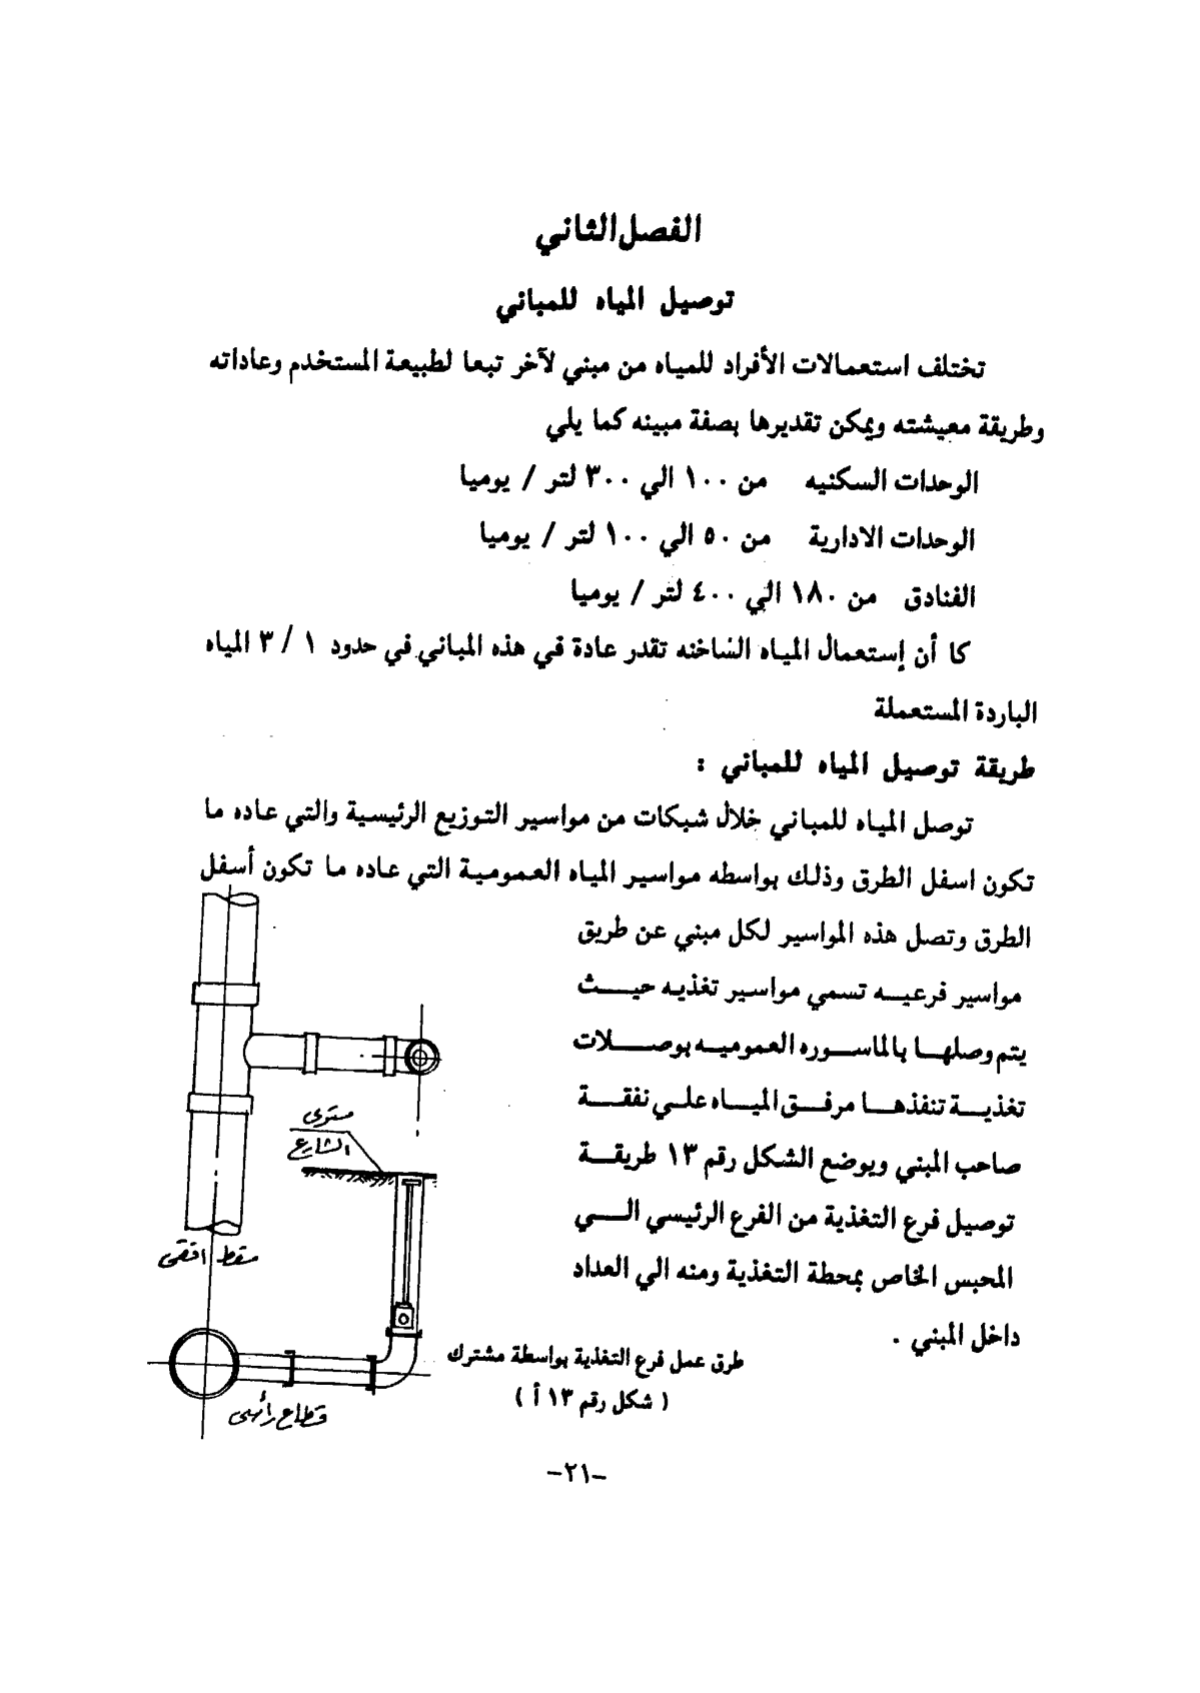 الفصل الثاني
توصيل المياه للمباني
تختلف استعمالات الأفراد للمياه من مبني لآخر تبعا لطبيعة المستخدم وعاداته
وطريقة معيشته ويمكن تقديرها بصفة مبينه كما يلي
الوحدات السكنيه من ١٠٠ الي ٣٠٠ لتر / يوميا
الوحدات الادارية من ٥٠ الي ١٠٠ لتر / يوميا
الفنادق من ١٨٠ الي ٤٠٠ لتر / يوميا
كا أن إستعمال المياه الساخنه تقدر عادة في هذه المباني في حدود ١ / ٣ المياه
الباردة المستعملة
طريقة توصيل المياه للمباني :
توصل المياه للمباني خلال شبكات من مواسير التوزيع الرئيسية والتي عاده ما
تكون اسفل الطرق وذلك بواسطه مواسير المياه العمومية التي عاده ما تكون أسفل
الطرق وتصل هذه المواسير لكل مبني عن طريق
مواسير فرعيــه تسمي مواسير تغذيه حيــــث
يتم وصلهــا بالماســوره العموميــه بوصــــلات
تغذيــة تنفذهــا مرفــق الميــاه علــي نفقــــة
صاحب المبني ويوضع الشكل رقم ١٣ طريقــة
توصيل فرع التغذية من الفرع الرئيسي الــــي
المحبس الخاص بمحطة التغذية ومنه الي العداد
داخل المبني .
مستوى
الشارع
مسقط افقى
قطاع رأسى
طرق عمل فرع التغذية بواسطة مشترك
( شكل رقم ١٣ أ )
-٢١-